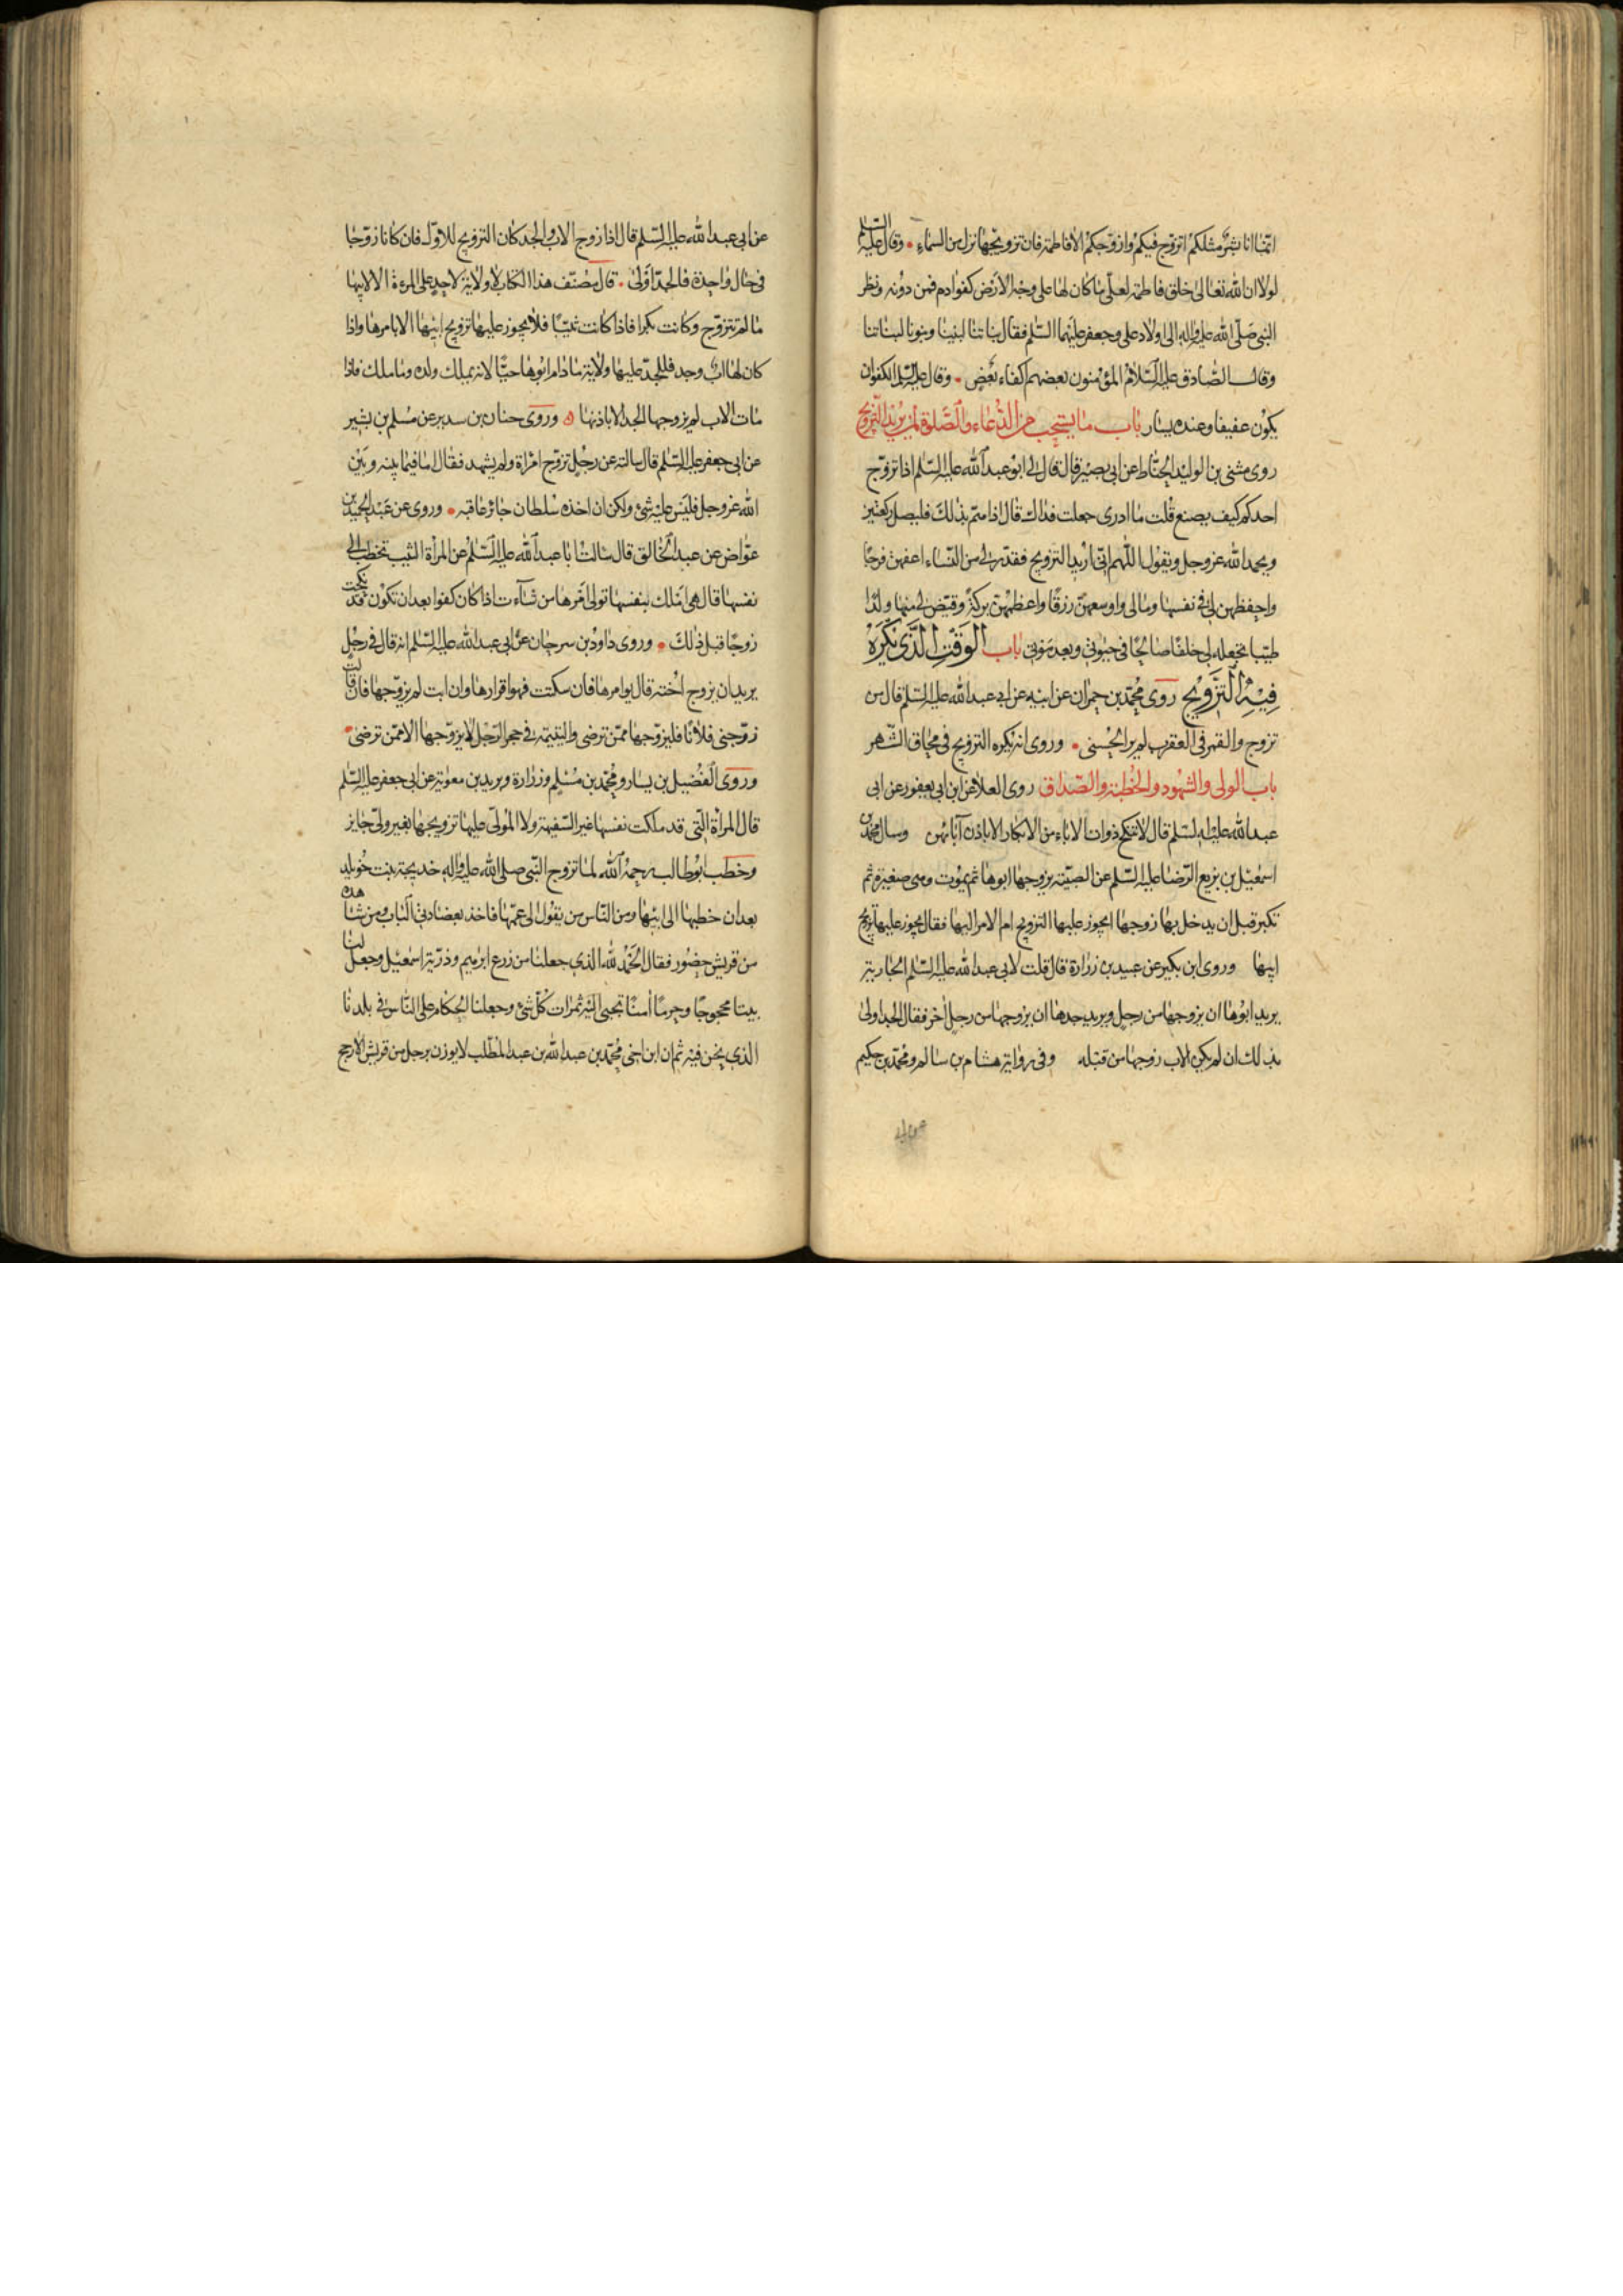 انما انا بشر مثلكم اتزوج فيكم وازوجكم الا فاطمة فان تزويجها نزل من السماء وقال عليه السلم
لولا ان الله تعالى خلق فاطمة لعلي ما كان لها على وجه الارض كفو ادم فمن دونه ونظر
النبي صلى الله عليه واله الى اولاد علي وجعفر عليهما السلم فقال بناتنا لبنينا وبنونا لبناتنا
وقال الصادق عليه السلام المؤمنون بعضهم اكفاء بعض وقال عليه السلم الكفو ان
يكون عفيفا وعنده يسار باب ما يستحب من الدعاء والصلوة لمن يريد التزويج
روى مثنى بن الوليد الحناط عن ابي بصير قال قال لي ابو عبد الله عليه السلم اذا تزوج
احدكم كيف يصنع قلت ما ادري جعلت فداك قال اذا هم بذلك فليصل ركعتين
ويحمد الله عز وجل ويقول اللهم اني اريد التزويج فقدر لي من النساء اعفهن فرجا
واحفظهن لي في نفسها ومالي واوسعهن رزقا واعظمهن بركة وقيض لي منها ولدا
طيبا تجعله لي خلفا صالحا في حيوتي وبعد موتي باب الوقت الذي يكره
فيه التزويج روى محمد بن حمران عن ابيه عن ابي عبد الله عليه السلم قال من
تزوج والقمر في العقرب لم ير الحسنى وروى انه يكره التزويج في محاق الشهر
باب الولي والشهود والخطبة والصداق روى العلا عن ابن ابي يعفور عن ابي
عبد الله عليه السلم قال لا تنكح ذوات الاباء من الابكار الا باذن آبائهن وسال محمد بن
اسمعيل بن بزيع الرضا عليه السلم عن الصبية يزوجها ابوها ثم يموت وهي صغيرة ثم
تكبر قبل ان يدخل بها زوجها ايجوز عليها التزويج ام الامر اليها فقال يجوز عليها تزويج
ابيها وروى ابن بكير عن عبيد بن زرارة قال قلت لابي عبد الله عليه السلم الجارية
يريد ابوها ان يزوجها من رجل ويريد جدها ان يزوجها من رجل اخر فقال الجد اولى
بذلك ان لم يكن الاب زوجها من قبله وفي رواية هشام بن سالم ومحمد بن حكيم
عن ابي عبد الله عليه السلم قال اذا زوج الاب والجد كان التزويج للاول فان كانا زوجا
في حال واحدة فالجد اولى قال مصنف هذا الكتاب لا ولاية لاحد على المرءة الا لابيها
ما لم تتزوج وكانت بكرا فاذا كانت ثيبا فلا يجوز عليها تزويج ابيها الا بامرها واذا
كان لها اب وجد فللجد عليها ولاية ما دام ابوها حيا لانه يملك ولده وما ملك فاذا
مات الاب لم يزوجها الجد الا باذنها وروى حنان بن سدير عن مسلم بن بشير
عن ابي جعفر عليه السلم قال سالته عن رجل تزوج امراة ولم يشهد فقال اما فيما بينه وبين
الله عز وجل فليس عليه شئ ولكن ان اخذه سلطان جائر عاقبه وروى عن عبد الحميد بن
عواض عن عبد الخالق قال سالت ابا عبد الله عليه السلم عن المراة الثيب تخطب الى
نفسها قال هي املك بنفسها تولي امرها من شآءت اذا كان كفوا بعد ان تكون قد نكحت
زوجا قبل ذلك وروى داود بن سرحان عن ابي عبد الله عليه السلم انه قال في رجل
يريد ان يزوج اخته قال يوامرها فان سكتت فهو اقرارها وان ابت لم يزوجها فان قالت
زوجني فلانا فليزوجها ممن ترضى واليتيمة في حجر الرجل لا يزوجها الا ممن ترضى
وروى الفضيل بن يسار ومحمد بن مسلم وزرارة وبريد بن معوية عن ابي جعفر عليه السلم
قال المراة التي قد ملكت نفسها غير السفيهة ولا المولى عليها تزويجها بغير ولي جايز
وخطب ابو طالب رحمه الله لما تزوج النبي صلى الله عليه واله خديجة بنت خويلد
بعد ان خطبها الى ابيها ومن الناس من يقول الى عمها فاخذ بعضادتي الباب ومن شاهده
من قريش حضور فقال الحمد لله الذي جعلنا من زرع ابرهيم وذرية اسمعيل وجعل لنا
بيتا محجوجا وحرما امنا تجبى اليه ثمرات كل شئ وجعلنا الحكام على الناس في بلدنا
الذي نحن فيه ثم ان ابن اخي محمد بن عبد الله بن عبد المطلب لا يوزن برجل من قريش الا رجح